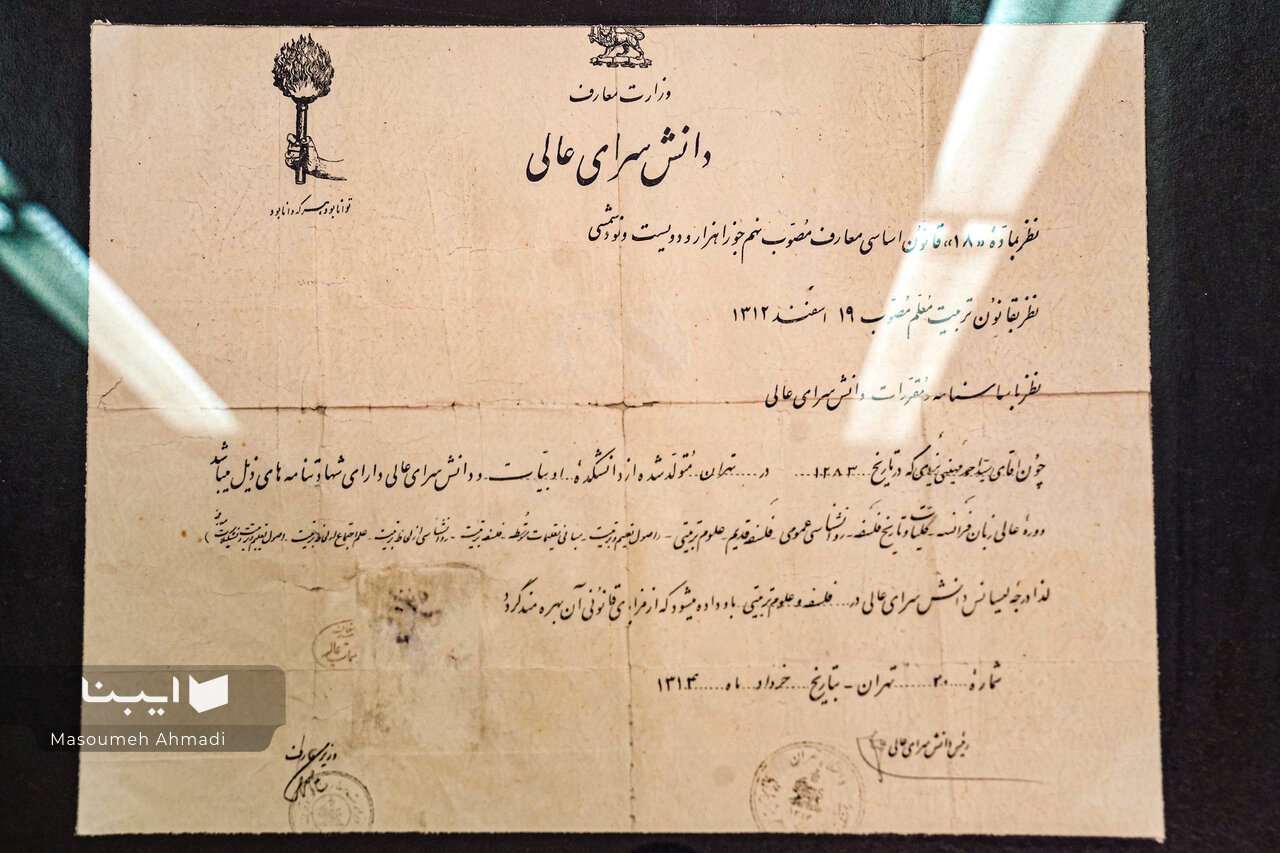 وزارت معارف
دانش سرای عالی
توانا بود هر که دانا بود
نظر بمادّهٔ «۱۸» قانون اساسی معارف مُصوّب نهم جوزا هزار و دویست و نود شمسی
نظر بقانون تربیت مُعلّم مُصوّب ۱۹ اسفند ۱۳۱۲
نظر باساسنامه و مُقرّرات دانش سرای عالی
چون آقای سیّد احمد مهینی که در تاریخ ۱۲۸۳ در تهران مُتولّد شده از دانشکدهٔ ادبیّات و دانش سرای عالی دارای شهادتنامه های ذیل میباشد
دورهٔ عالی زبان فرانسه - کلیّات و تاریخ فلسفه - روانشناسی عمومی - فلسفه قدیم - علوم تربیتی - (اصول تعلیم و تربیت - مبانی تعلیمات متوسّطه - فلسفه تربیت - روانشناسی از لحاظ تربیت - علم اجتماع از لحاظ تربیت -
لذا درجهٔ لیسانس دانش سرای عالی در فلسفه و علوم تربیتی باو داده میشود که از مزایای قانونی آن بهره مند گردد
شمارهٔ ۲۰ تهران - بتاریخ خرداد ماه ۱۳۱۴
رئیس دانش سرای عالی
وزیر معارف
ایبنا
Masoumeh Ahmadi